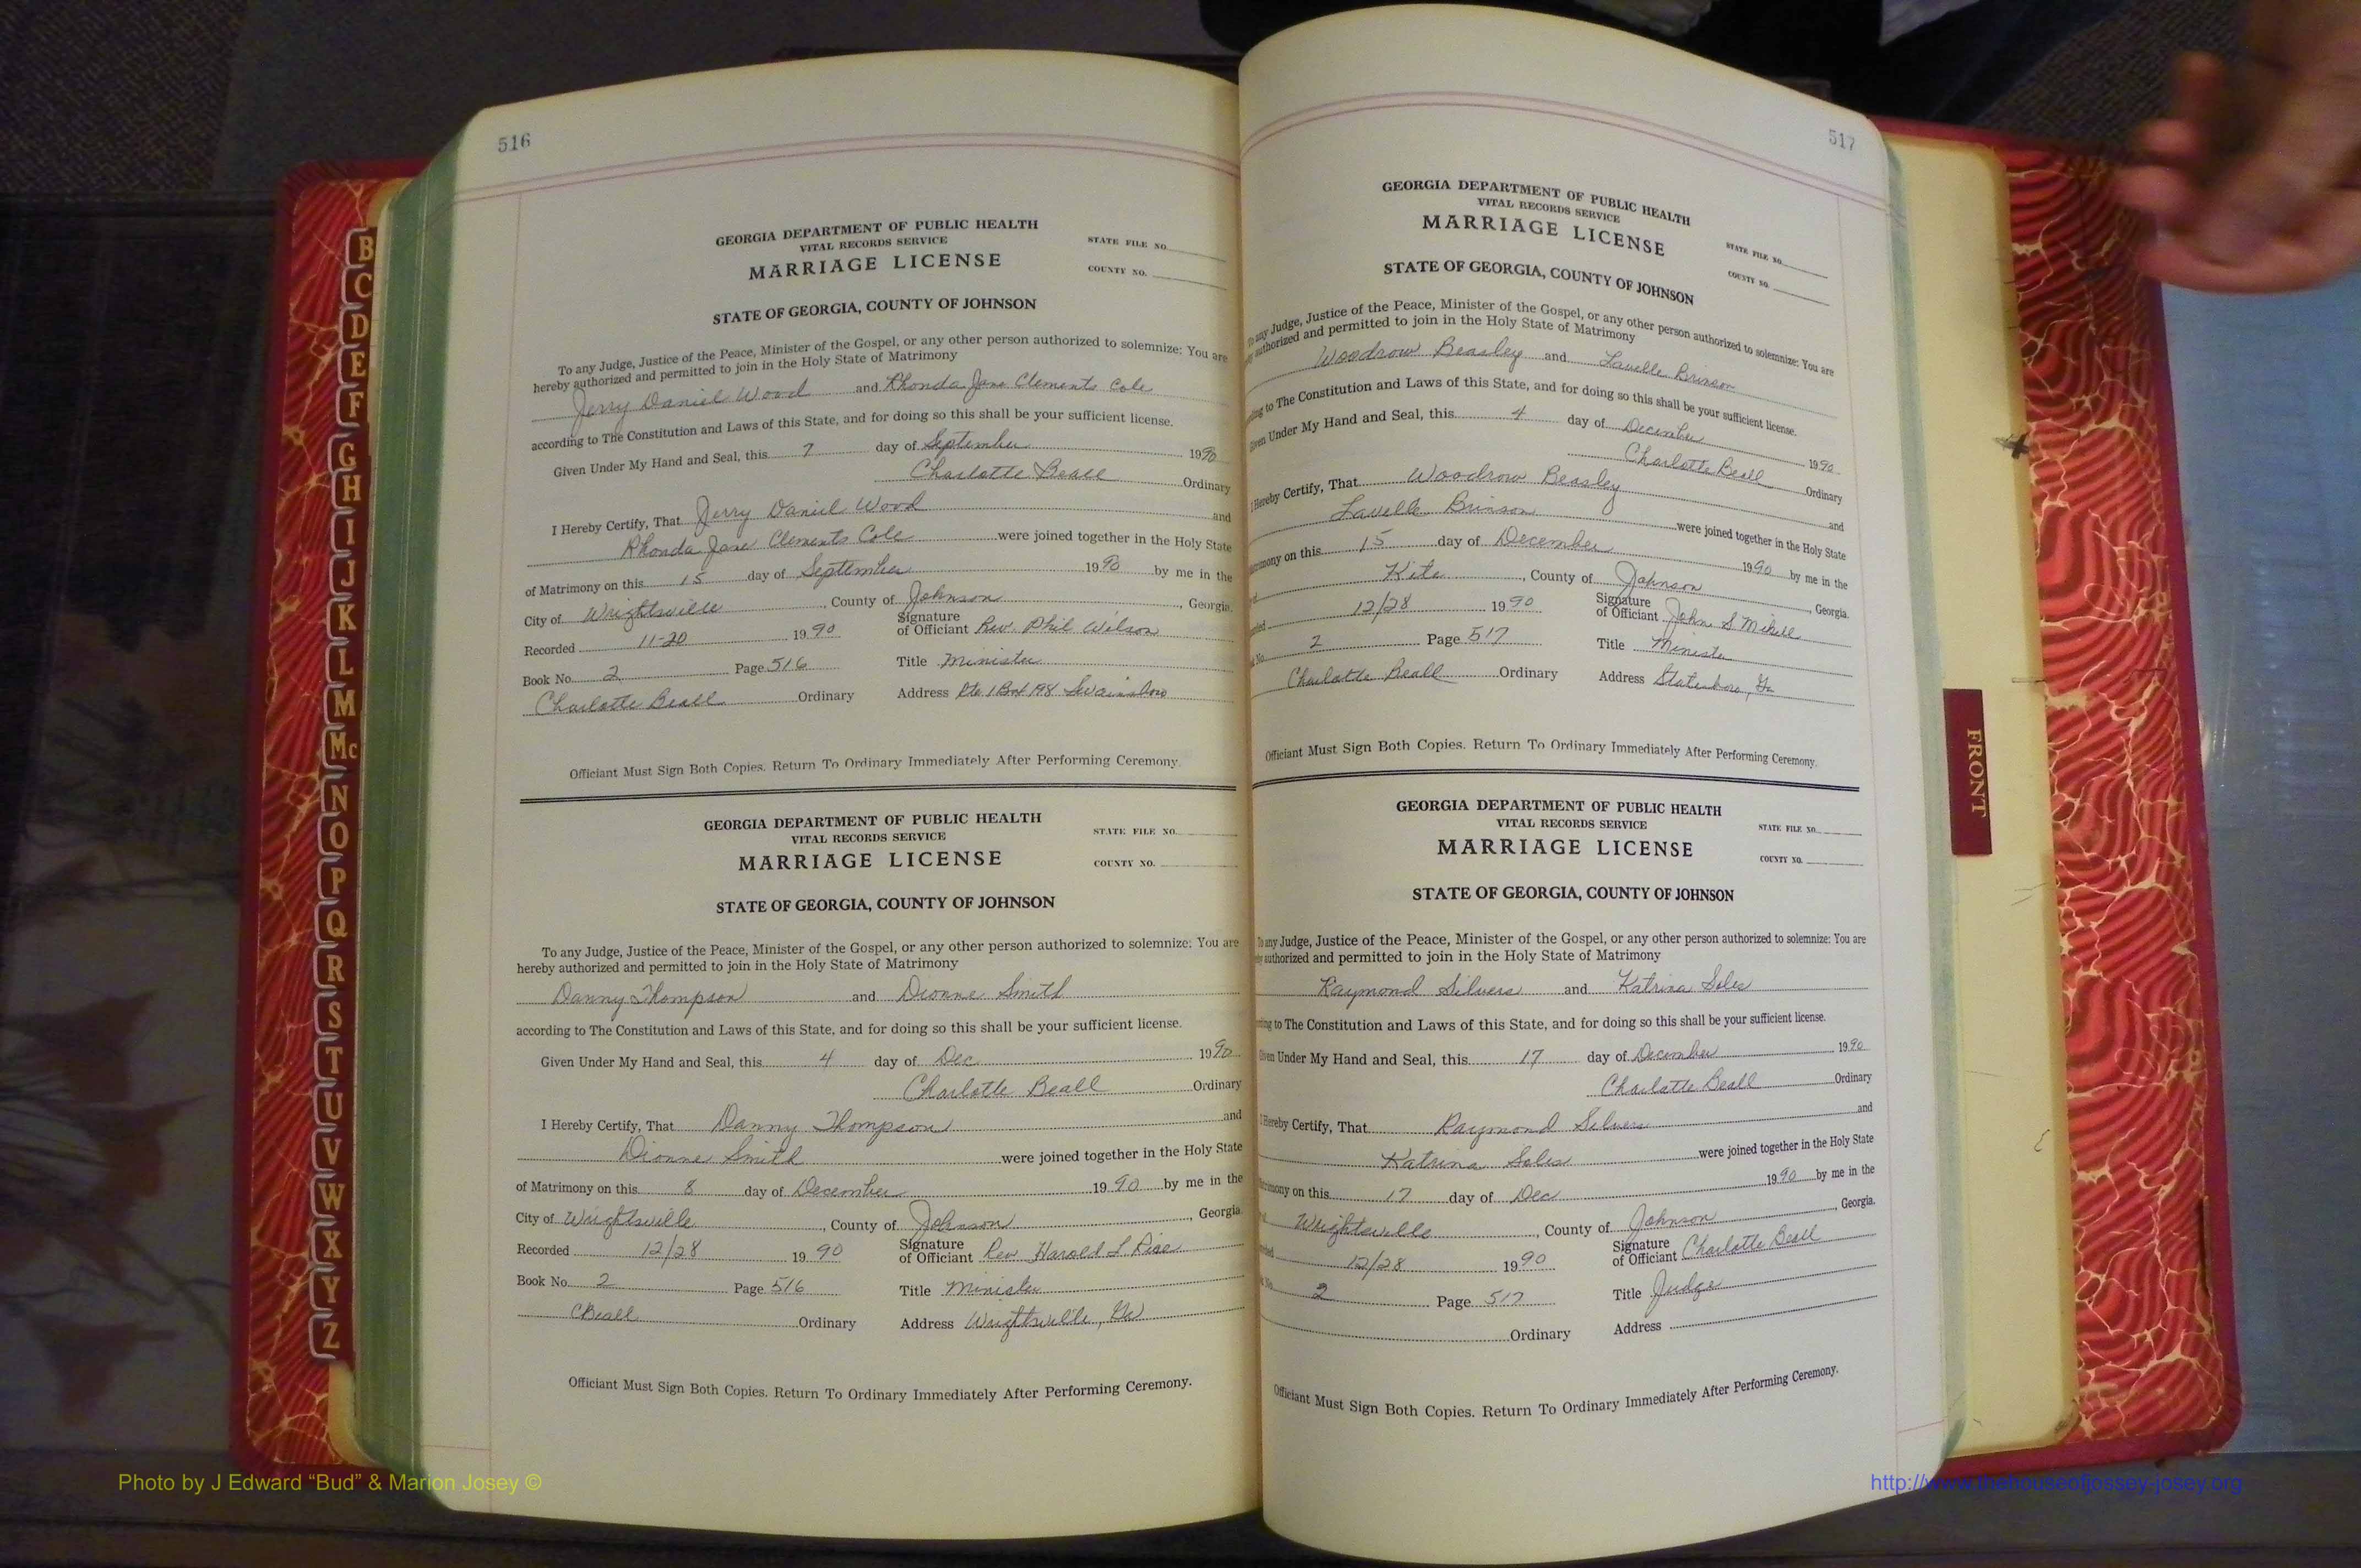 516
GEORGIA DEPARTMENT OF PUBLIC HEALTH
VITAL RECORDS SERVICE
MARRIAGE LICENSE
STATE FILE NO.
COUNTY NO.
STATE OF GEORGIA, COUNTY OF JOHNSON
To any Judge, Justice of the Peace, Minister of the Gospel, or any other person authorized to solemnize: You are
hereby authorized and permitted to join in the Holy State of Matrimony
Jerry Daniel Wood and Rhonda Jane Clements Cole
according to The Constitution and Laws of this State, and for doing so this shall be your sufficient license.
Given Under My Hand and Seal, this 7 day of September 1990
Charlotte Beall Ordinary
I Hereby Certify, That Jerry Daniel Wood and
Rhonda Jane Clements Cole were joined together in the Holy State
of Matrimony on this 15 day of September 1990 by me in the
City of Wrightsville, County of Johnson, Georgia.
Recorded 11-20 1990 Signature of Officiant Rev. Phil Wilson
Book No. 2 Page 516 Title Minister
Charlotte Beall Ordinary Address Rte 1 Box 198 Swainsboro
Officiant Must Sign Both Copies. Return To Ordinary Immediately After Performing Ceremony.
GEORGIA DEPARTMENT OF PUBLIC HEALTH
VITAL RECORDS SERVICE
MARRIAGE LICENSE
STATE FILE NO.
COUNTY NO.
STATE OF GEORGIA, COUNTY OF JOHNSON
To any Judge, Justice of the Peace, Minister of the Gospel, or any other person authorized to solemnize: You are
hereby authorized and permitted to join in the Holy State of Matrimony
Danny Thompson and Dionne Smith
according to The Constitution and Laws of this State, and for doing so this shall be your sufficient license.
Given Under My Hand and Seal, this 4 day of Dec 1990
Charlotte Beall Ordinary
I Hereby Certify, That Danny Thompson and
Dionne Smith were joined together in the Holy State
of Matrimony on this 8 day of December 1990 by me in the
City of Wrightsville, County of Johnson, Georgia.
Recorded 12/28 1990 Signature of Officiant Rev Harold L
Book No. 2 Page 516 Title Minister
CBeall Ordinary Address Wrightsville, Ga
Officiant Must Sign Both Copies. Return To Ordinary Immediately After Performing Ceremony.
517
GEORGIA DEPARTMENT OF PUBLIC HEALTH
VITAL RECORDS SERVICE
MARRIAGE LICENSE
STATE FILE NO.
COUNTY NO.
STATE OF GEORGIA, COUNTY OF JOHNSON
To any Judge, Justice of the Peace, Minister of the Gospel, or any other person authorized to solemnize: You are
authorized and permitted to join in the Holy State of Matrimony
Woodrow Beasley and Lavelle Brinson
to The Constitution and Laws of this State, and for doing so this shall be your sufficient license.
Given Under My Hand and Seal, this 4 day of December 1990
Charlotte Beall Ordinary
I Hereby Certify, That Woodrow Beasley and
Lavelle Brinson were joined together in the Holy State
on this 15 day of December 1990 by me in the
Kite, County of Johnson, Georgia.
12/28 1990 Signature of Officiant John S Mikell
No. 2 Page 517 Title Minister
Charlotte Beall Ordinary Address Statesboro, Ga
Officiant Must Sign Both Copies. Return To Ordinary Immediately After Performing Ceremony.
GEORGIA DEPARTMENT OF PUBLIC HEALTH
VITAL RECORDS SERVICE
MARRIAGE LICENSE
STATE FILE NO.
COUNTY NO.
STATE OF GEORGIA, COUNTY OF JOHNSON
To any Judge, Justice of the Peace, Minister of the Gospel, or any other person authorized to solemnize: You are
authorized and permitted to join in the Holy State of Matrimony
Raymond Silvers and Katrina Soles
to The Constitution and Laws of this State, and for doing so this shall be your sufficient license.
Given Under My Hand and Seal, this 17 day of December 1990
Charlotte Beall Ordinary
I Hereby Certify, That Raymond Silvers and
Katrina Soles were joined together in the Holy State
on this 17 day of Dec 1990 by me in the
Wrightsville, County of Johnson, Georgia.
12/28 1990 Signature of Officiant Charlotte Beall
No. 2 Page 517 Title Judge
Ordinary Address
Officiant Must Sign Both Copies. Return To Ordinary Immediately After Performing Ceremony.
B
C
D
E
F
G
H
I
J
K
L
M
Mc
N
O
P
Q
R
S
T
U
V
W
X
Y
Z
FRONT
Photo by J Edward “Bud” & Marion Josey ©
http://www.thehouseofjossey-josey.org